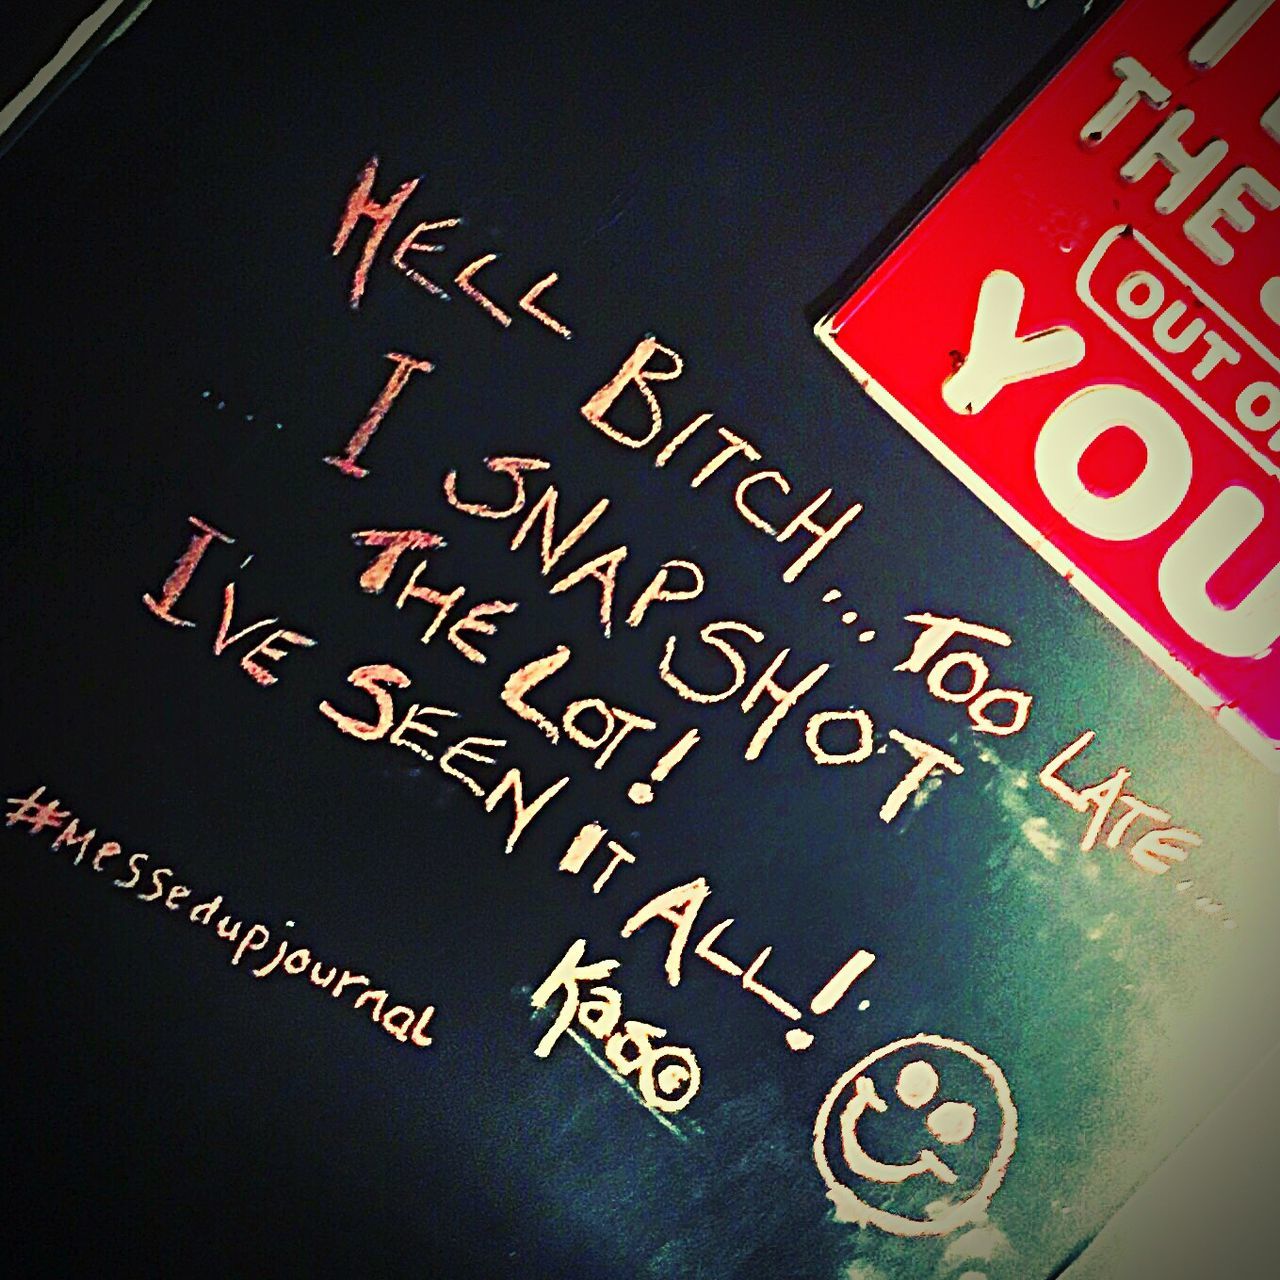 HELL BITCH... TOO LATE....
I SNAPSHOT
THE LOT!
I'VE SEEN IT ALL!
Kaso
#messedupjournal
THE
OUT
YOU